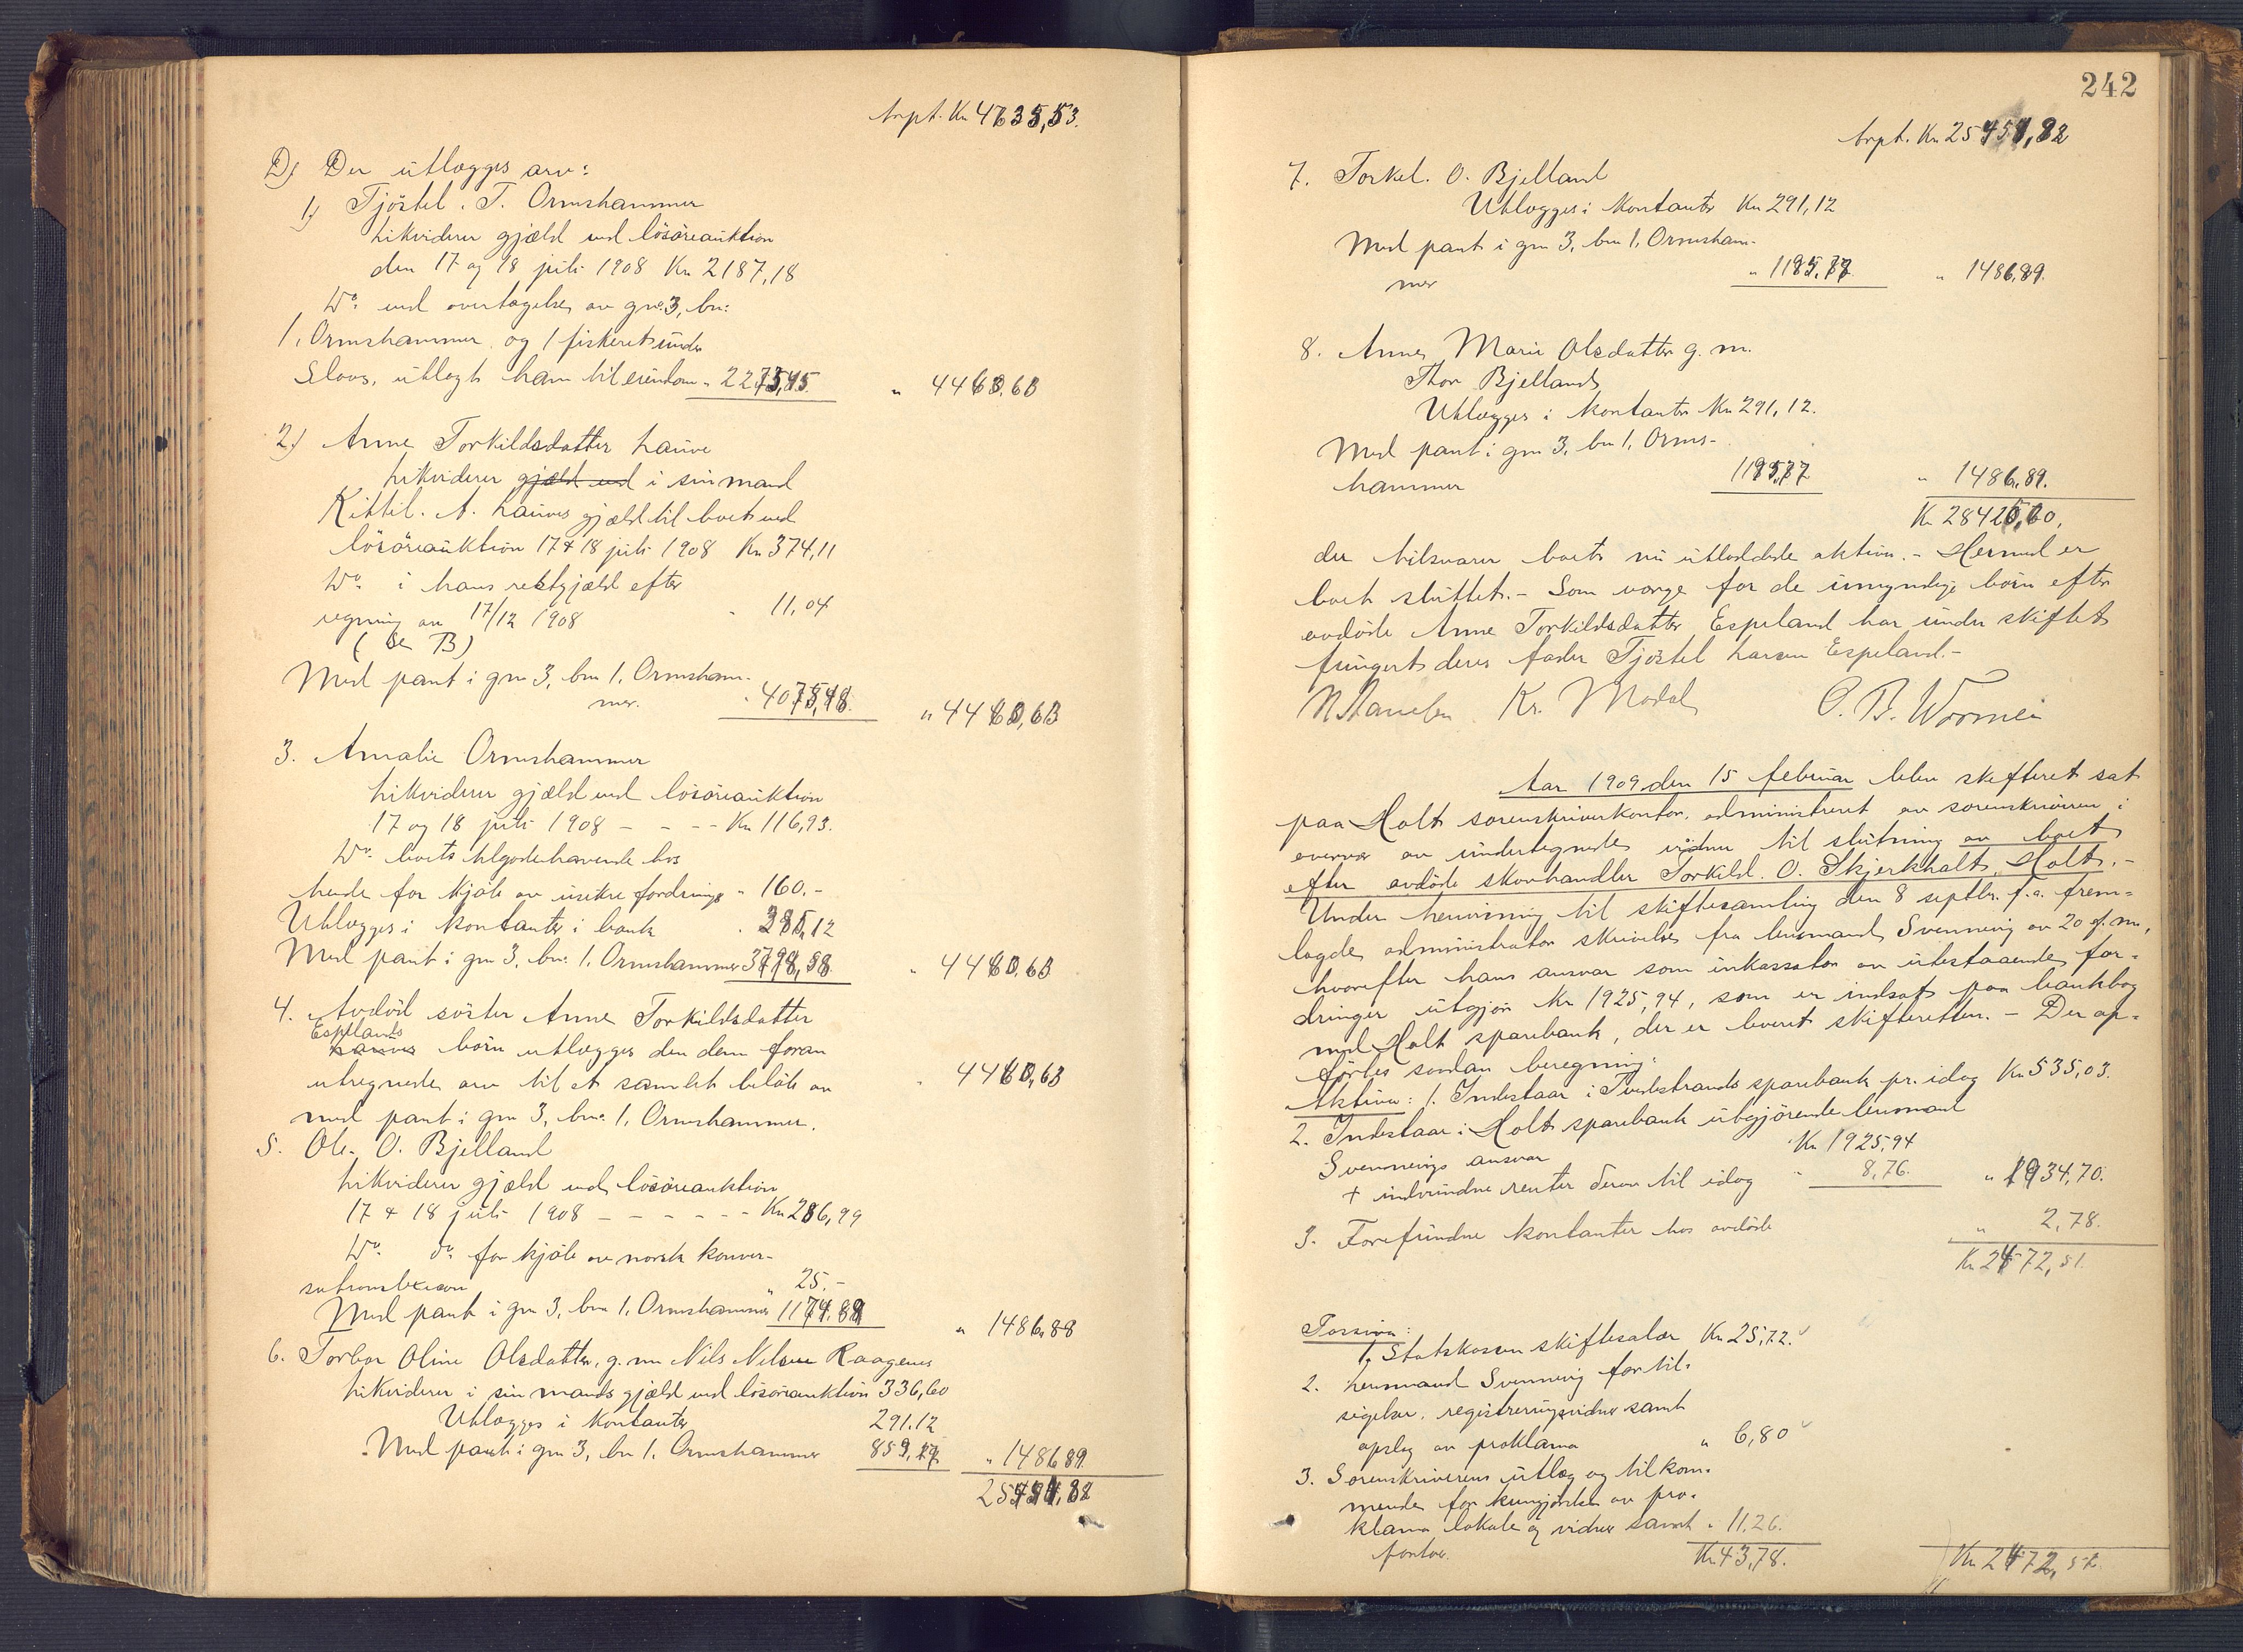 Trpt. Kr 4635,53.
D) Der utlægges arv:
1) Tjöstel. T. Ormshammer
Likviderer gjæld ved lösöreauktion
den 17 og 18 juli 1908 Kr 2187,18
Do. ved overtagelse av gno. 3, bno:
1, Ormshammer og 1 fiskeret under
utlagt ham til eiendom " 2273,45
" 4460,63
2) Anne Torkildsdatter Lauve
Likviderer gjæld ved i sin mand
Kittil. A. Lauves gjæld til boet ved
lösöreauktion 17 & 18 juli 1908 Kr 374,11
Do. i hans restgjæld efter
regning av 17/12 1908 " 11,04
(Se B)
Med pant i gno 3, bno 1, Ormsham-
mer. " 4075,48
" 4460,63
3. Amalie Ormshammer
Likviderer gjæld ved lösöreauktion
17 og 18 juli 1908 - - - - Kr 116,93.
Do. boets tilgodehavende hos
hende for kjöb av usikre fordringer " 160.-
Utlægges i kontanter i bank " ,12
Med pant i gno 3, bno. 1, Ormshammer
" 4460,63
4. Avdöd söster Anne Torkildsdatter
Espelands
Lauves börn utlægges den dem foran
utregnede arv til et samlet belöb av
" 4460,63
med pant i gno 3, bno. 1, Ormshammer.
5. Ole. O. Bjelland
Likviderer gjæld ved lösöreauktion
17 & 18 juli 1908 - - - - - - Kr 286,99
Do. do. for kjöb av norsk konver-
sationsleксicon " 25.-
Med pant i gno 3, bno 1, Ormshammer 1174,89
" 1486,88
6. Torbor Oline Olsdatter, g. m Nils Nilsen Raagenes
Likviderer i sin mands gjæld ved lösöreauktion 336,60
Utlægges i kontanter 291.12
Med pant i gno 3, bno 1, Ormshammer 859,17
" 1486,89
82
242
Trpt. Kr 25451,82
7. Torkel. O. Bjelland
Utlægges i kontanter Kr 291,12
Med pant i gno 3, bno 1, Ormsham-
mer " 1195,77 " 1486,89.
8. Anne Marie Olsdatter g. m.
Thor Bjelland
Utlægges i kontanter Kr 291,12.
Med pant i gno 3, bno 1, Orms-
hammer 1195,77 " 1486,89.
Kr 28425,60,
der tilsvarer boets nu utloddede aktiva. - Hermed er
boet sluttet. - Som værge for de umyndige börn efter
avdöde Anne Torkildsdatter Espeland har under skiftet
fungert deres fader Tjöstel Larsen Espeland. -
Kr. Modal
Aar 1909 den 15 februar blev skifteret sat
paa Holt sorenskriverkontor, administreret av sorenskriveren i
overvær av undertegnede vidner til slutning av boet
efter avdöde skovhandler Torkild. O. Skjerkholt, Holt. -
Under henvisning til skiftesamling den 8 septbr. f. a. frem-
lagde administrator skrivelse fra lensmand Svenning av 20 f. m,
hvorefter hans ansvar som inkassator av utestaaende for-
dringer utgjör Kr 1925,94, som er indsat paa bankbog
med Holt sparebank, der er leveret skifteretten. - Der op-
förtes saadan beregning:
Aktiva: 1. Indestaar i Tvedestrands sparebank pr. idag Kr. 535,03.
2. Indestaar i Holt sparebank utgjörende lensmand
Svennings ansvar Kr 1925,94
+ indvundne renter derav til idag " 8,76. " 1934,70.
3. Forefundne kontanter hos avdöde " 2,78.
Kr 2472,51
Passiva:
1. Statskassen skiftesalær Kr 25,72.
2. Lensmand Svenning for til-
sigelser, registreringsvidner samt
opslag av proklama " 6,80
3. Sorenskriverens utlæg og tilkom-
mende for kungjörelse av pro-
klama lokale og vidner samt " 11.26.
portoer. Kr 43,78. Kr 2472,51